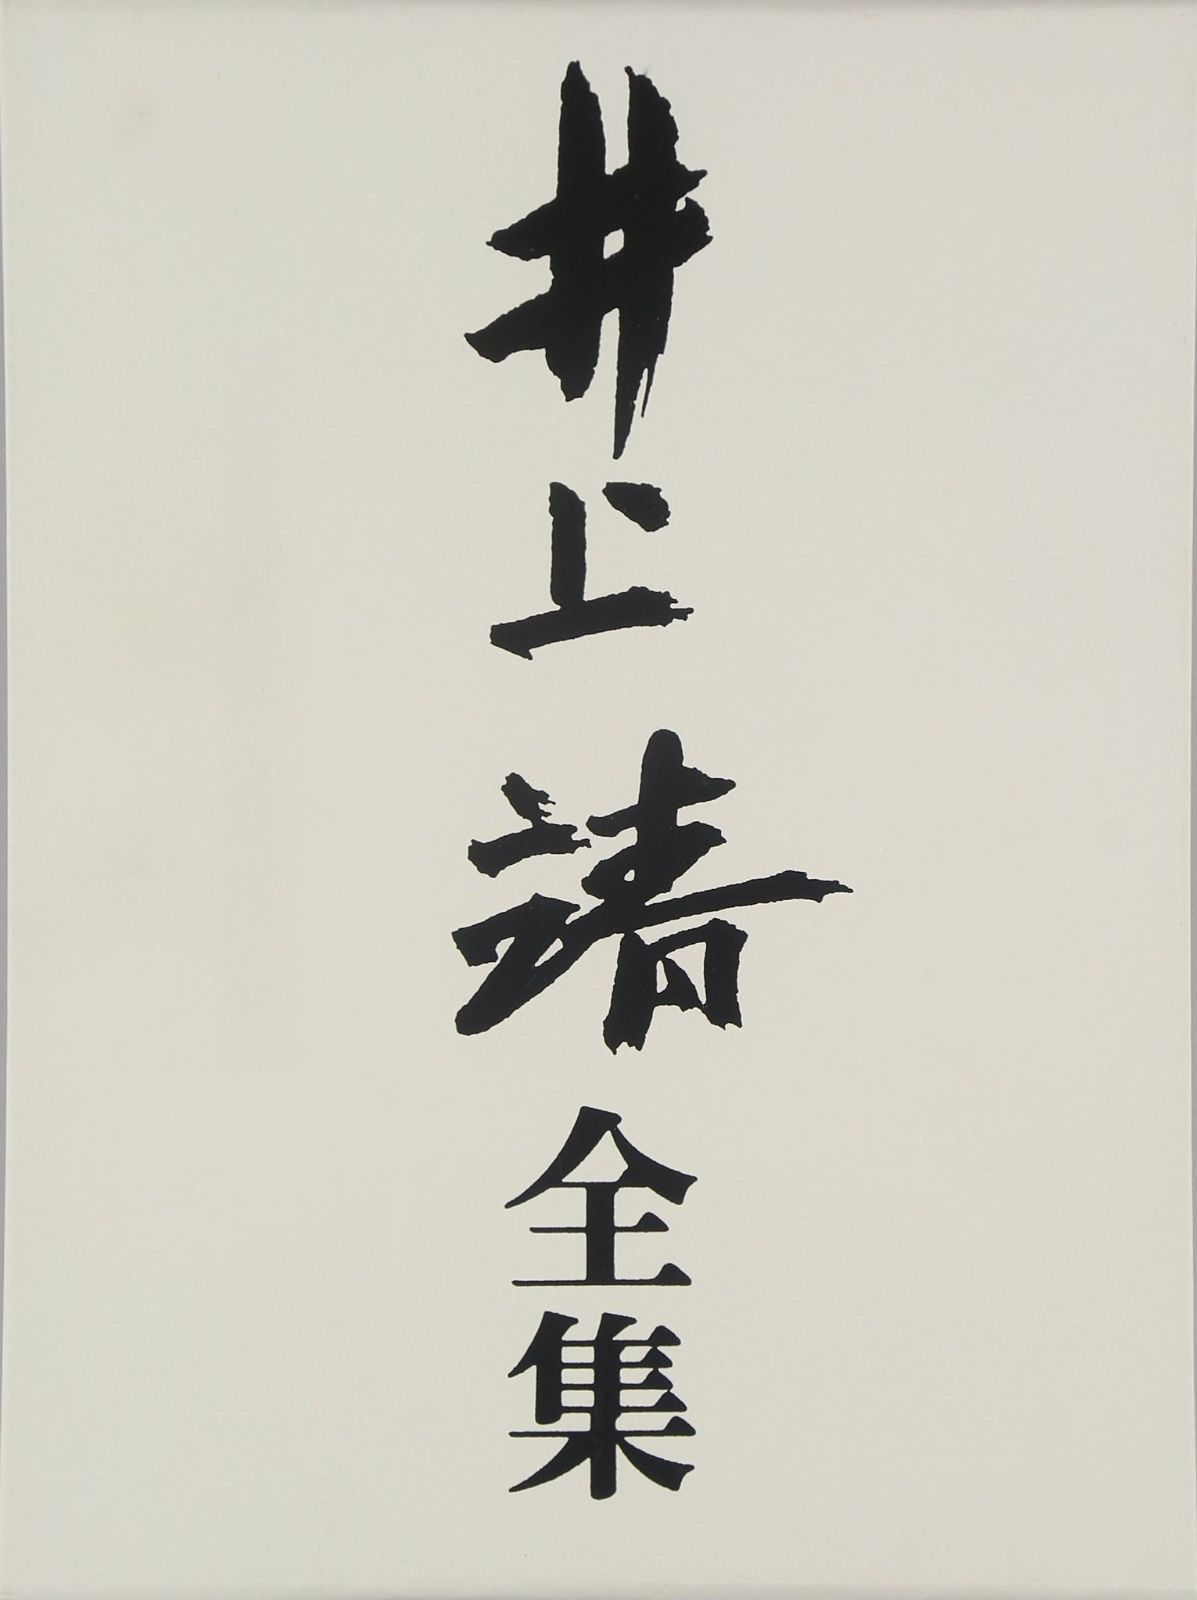 井上靖全集